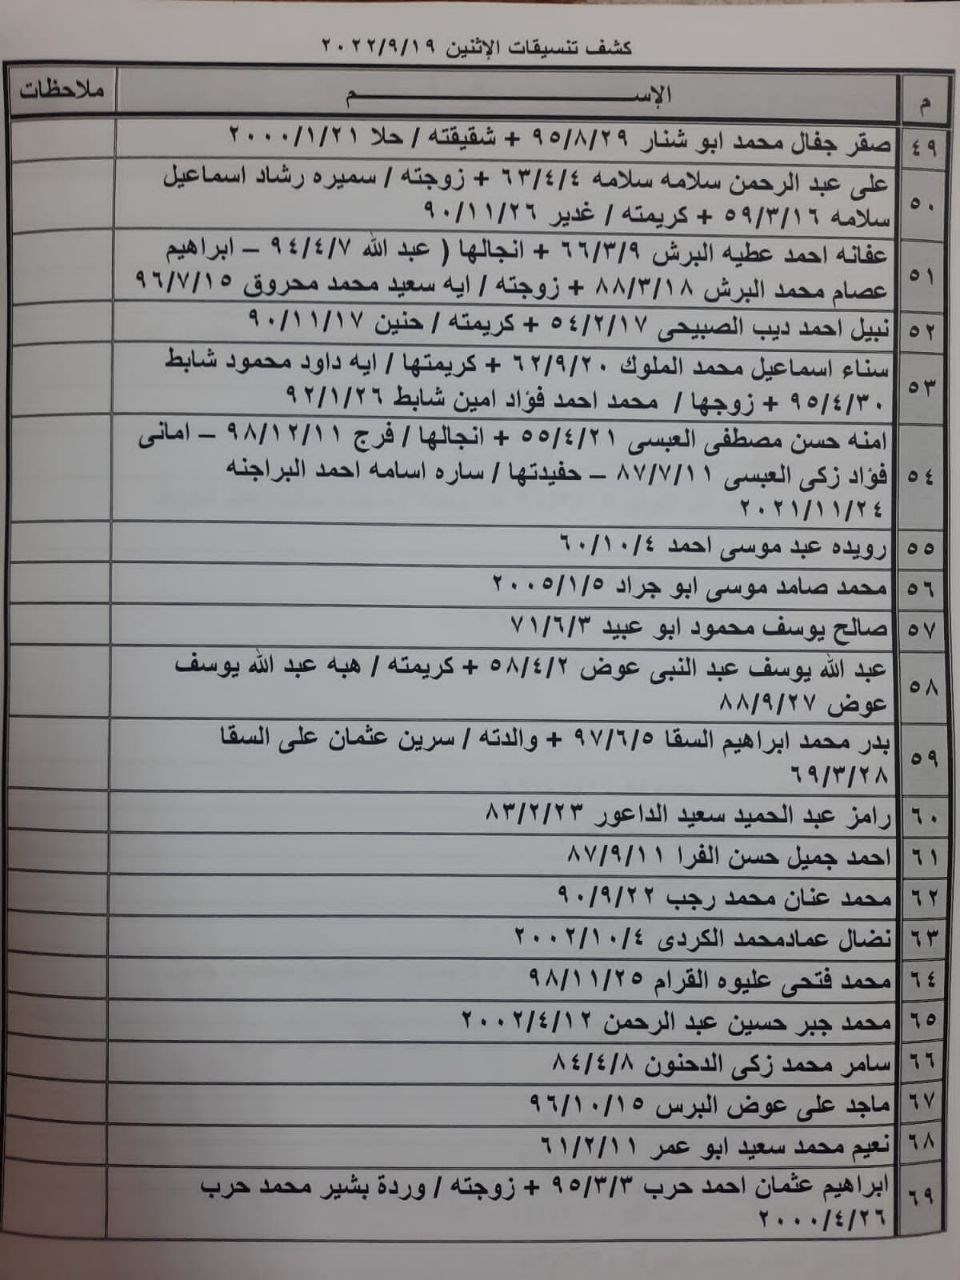 كشف تنسيقات الإثنين ٢٠٢٢/٩/١٩
م الإســـــــم ملاحظات
٤٩ صقر جفال محمد ابو شنار ٩٥/٨/٢٩ + شقيقته / حلا ٢٠٠٠/١/٢١
٥٠ على عبد الرحمن سلامه سلامه ٦٣/٤/٤ + زوجته / سميره رشاد اسماعيل
سلامه ٥٩/٣/١٦ + كريمته / غدير ٩٠/١١/٢٦
٥١ عفانه احمد عطيه البرش ٦٦/٣/٩ + انجالها ( عبد الله ٩٤/٤/٧ – ابراهيم
عصام محمد البرش ٨٨/٣/١٨ + زوجته / ايه سعيد محمد محروق ٩٦/٧/١٥
٥٢ نبيل احمد ديب الصبيحى ٥٤/٢/١٧ + كريمته / حنين ٩٠/١١/١٧
٥٣ سناء اسماعيل محمد الملوك ٦٢/٩/٢٠ + كريمتها / ايه داود محمود شابط
٩٥/٤/٣٠ + زوجها / محمد احمد فؤاد امين شابط ٩٢/١/٢٦
٥٤ امنه حسن مصطفى العبسى ٥٥/٤/٢١ + انجالها / فرج ٩٨/١٢/١١ – امانى
فؤاد زكى العبسى ٨٧/٧/١١ – حفيدتها / ساره اسامه احمد البراجنه
٢٠٢١/١١/٢٤
٥٥ رويده عبد موسى احمد ٦٠/١٠/٤
٥٦ محمد صامد موسى ابو جراد ٢٠٠٥/١/٥
٥٧ صالح يوسف محمود ابو عبيد ٧١/٦/٣
٥٨ عبد الله يوسف عبد النبى عوض ٥٨/٤/٢ + كريمته / هبه عبد الله يوسف
عوض ٨٨/٩/٢٧
٥٩ بدر محمد ابراهيم السقا ٩٧/٦/٥ + والدته / سرين عثمان على السقا
٦٩/٣/٢٨
٦٠ رامز عبد الحميد سعيد الداعور ٨٣/٢/٢٣
٦١ احمد جميل حسن الفرا ٨٧/٩/١١
٦٢ محمد عنان محمد رجب ٩٠/٩/٢٢
٦٣ نضال عمادمحمد الكردى ٢٠٠٢/١٠/٤
٦٤ محمد فتحى عليوه القرام ٩٨/١١/٢٥
٦٥ محمد جبر حسين عبد الرحمن ٢٠٠٢/٤/١٢
٦٦ سامر محمد زكى الدحنون ٨٤/٤/٨
٦٧ ماجد على عوض البرس ٩٦/١٠/١٥
٦٨ نعيم محمد سعيد ابو عمر ٦١/٢/١١
٦٩ ابراهيم عثمان احمد حرب ٩٥/٣/٣ + زوجته / وردة بشير محمد حرب
٢٠٠٠/٤/٢٦